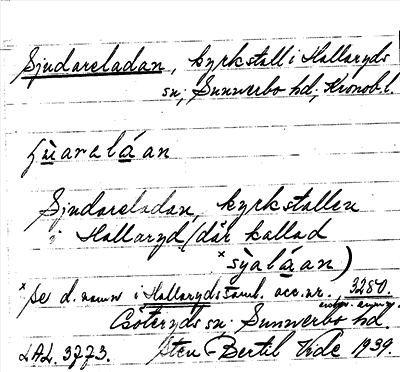 Sjudareladan, kyrkstall i Hallaryds
sn; Sunnerbo hd; Kronob. l.
ʃùaralá an
Sjudareladan, kyrkstallen
i Hallaryd (där kallad
×sỳaláan)
× se d. namn i Hallaryds saml. acc. nr. 3280.
Göteryds sn. Sunnerbo hd.
LAL. 3773. Sten-Bertil Vide 1939.